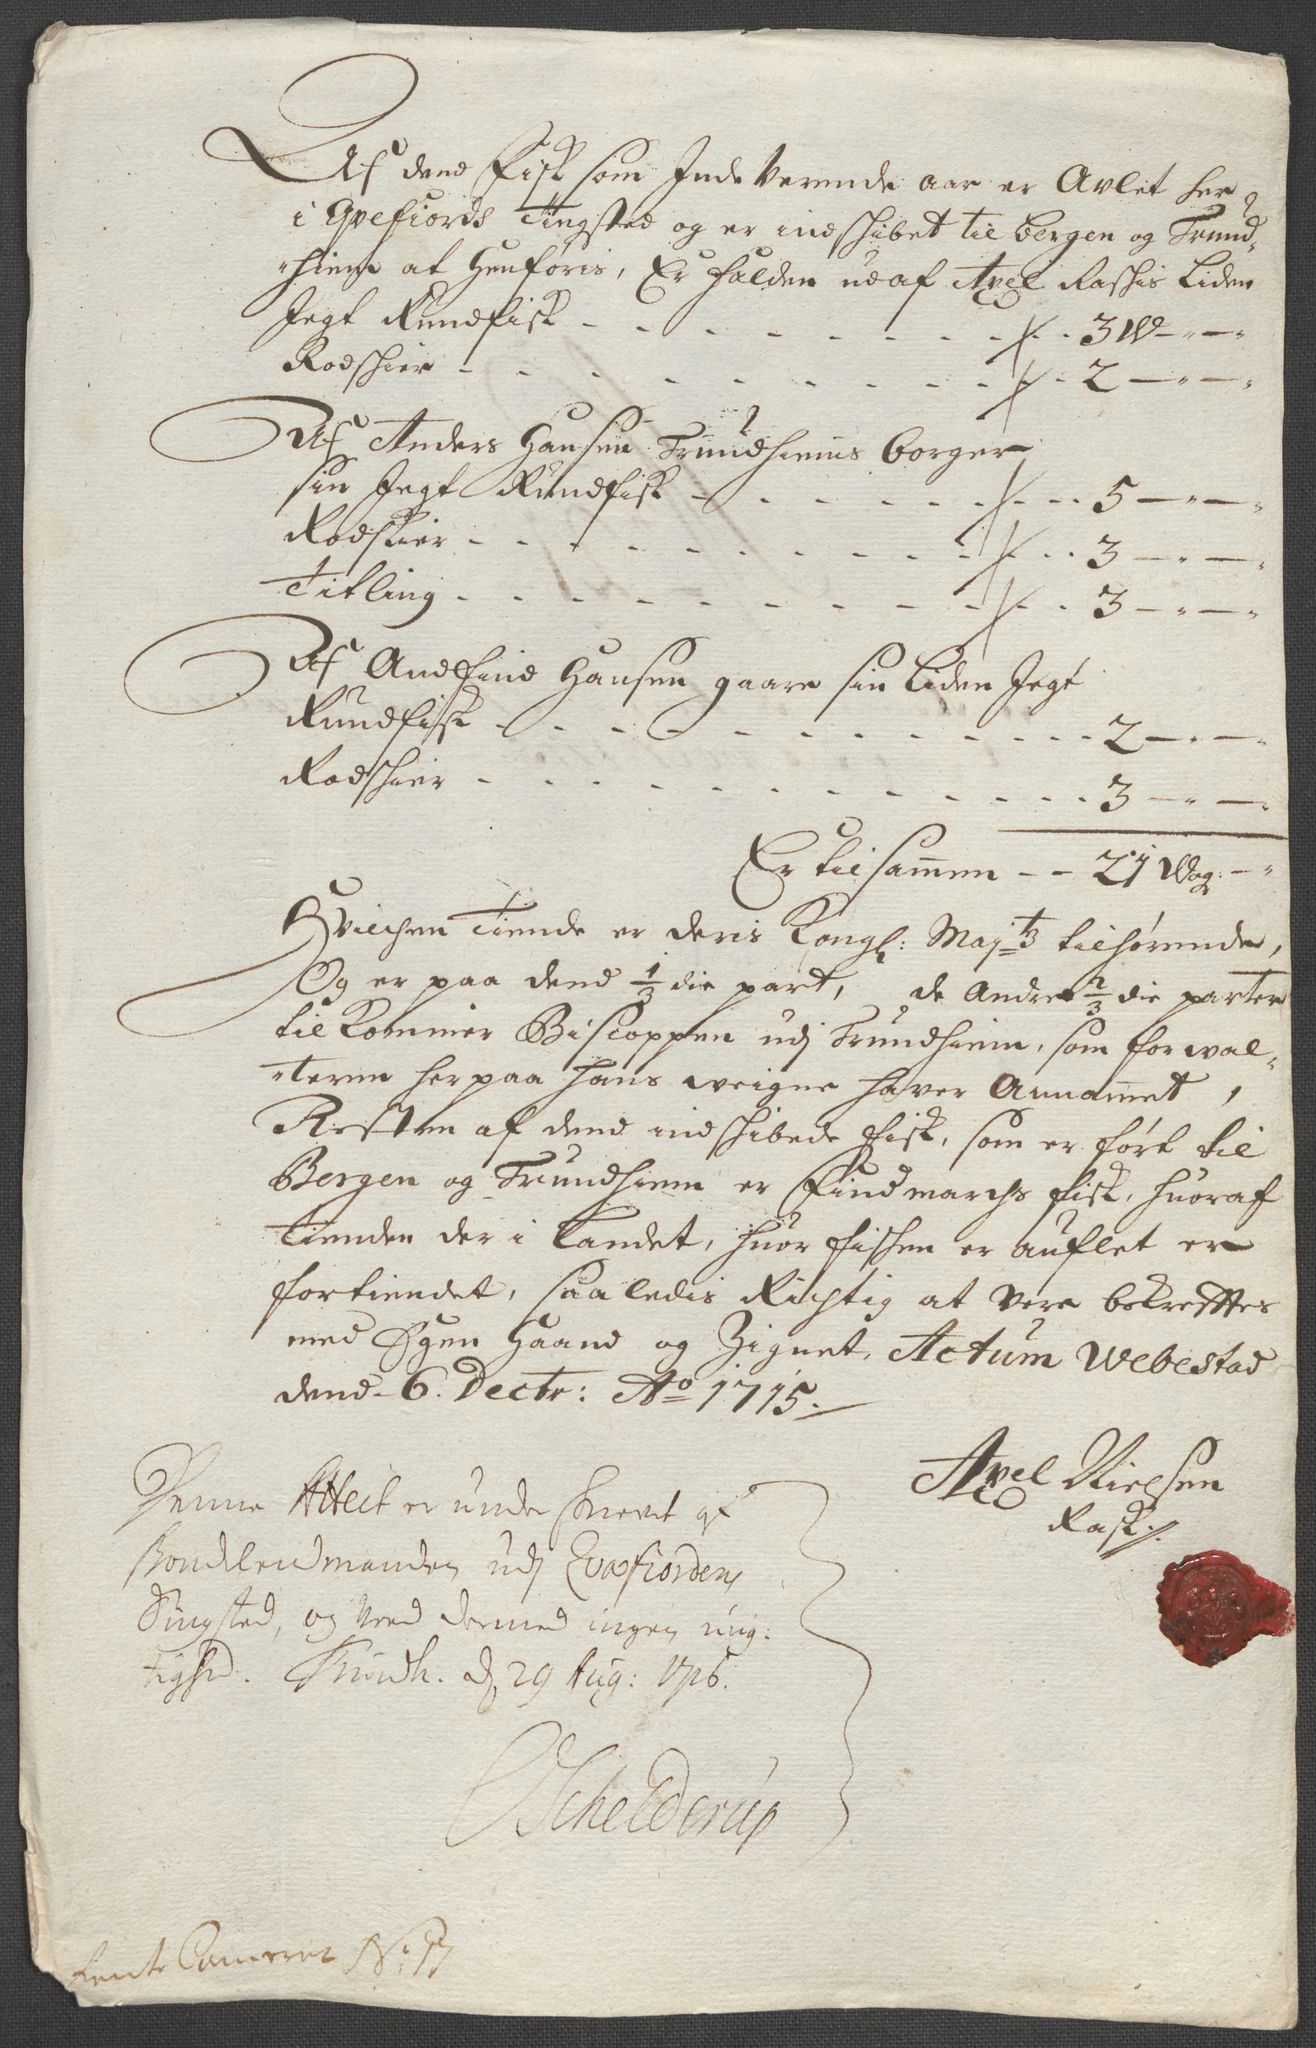 Af dend Fisk som Inde Verende aar er Avlet her
i Qvefiords Tingsted og er indschibet til bergen og Trund-
hiem at henføris, Er falden udaf Axel Raschis Liden
Jegt Rundfisk - - - 3 W - " - "
Rodschier - - - 2 - " - "
Af Anders Hansen Trundhiems borger
sin Jegt Rundfisk - - - 5 - " - "
Rodskier - - - 3 - " - "
Titling - - - 3 - " - "
Af Andfind Hansen gaare sin Liden Jegt
Rundfisk - - - 2 - " - "
Rodschier - - - 3 - " - "
Er tilsammen - - 21 Wog: - "
Hvilchen Tiende er deris Kongl: Maj:ts tilhørende,
Og er paa dend 1/3 die part, de Andre 2/3 die parter
til Kommer Biscoppen udj Trundhiem, som forwal-
teren her paa hans weigne haver Annammet,
Resten af dend indschibede fisk, som er ført til
Bergen og Trundhiem er Findmarchs fisk, huoraf
Tienden der i Landet, huor fischen er auflet er
fortiendet, saaledis Richtig at Vere bekreffter
med Egen Haand og Zignet, Actum Webestad
dend 6. Dectr: Ao 1715.
Axel Nielsen
Rask
Denne Attest er underskrevet af
Bondelendmanden udj Qvæfiorden
Tingsted, og Veed dermed ingen urig-
tighed. Trundh. d 29 Aug: 1716.
Schelderup
Rente Cammeret No: 17